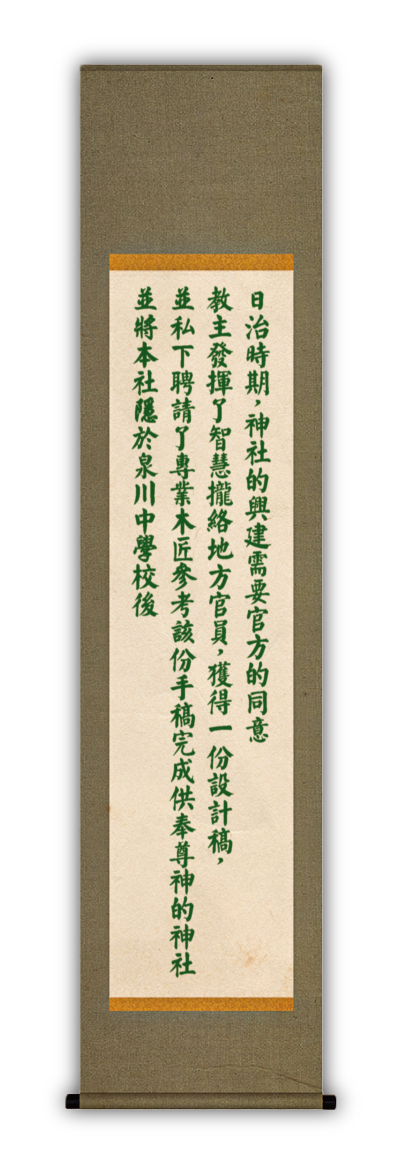 日治時期，神社的興建需要官方的同意
教主發揮了智慧攏絡地方官員，獲得一份設計稿，
並私下聘請了專業木匠參考該份手稿完成供奉尊神的神社
並將本社隱於泉川中學校後